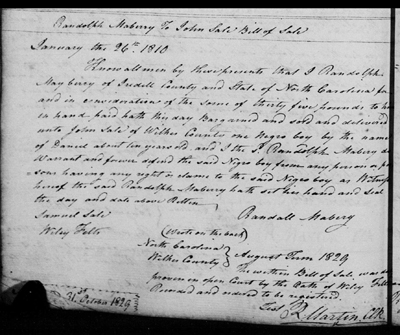 Randolph Maberry To John Sale Bill of Sale
January the 26th 1810
Know all men by these presents that I Randolph
Mayberry of Iredell County and State of North Carolina for
and in consideration of the sum of thirty five pounds to me
in hand paid hath this day Bargained and sold and delivered
unto John Sale of Wilkes County one Negro boy by the name
of Daniel about ten years old and I the sd Randolph Maberry do
Warrant and forever defend the said Negro boy from any person or per
sons having any right or claime to the said Negro boy as Witness
hereof the said Randolph Maberry hath set his hand and seal
the day and date above Ritten
Randall Mabery
Samuel Sale
Wiley Felts
(Wrote on the back)
North Carolina
Wilkes County
August Term 1829
The written Bill of Sale was duly
proven in open Court by the Oath of Wiley Felts
Record and ordered to be registered.
Test R Martin Clk
31st October 1829